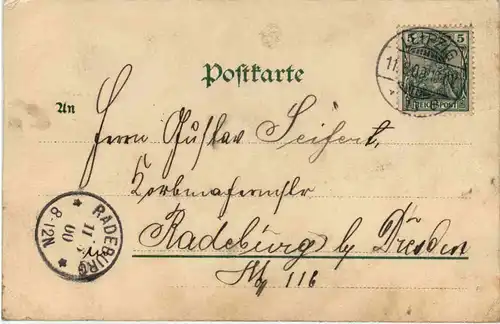 5 LEIPZIG 5
REICHSPOST
Postkarte
An
Herrn Gustav Seifert,
Korbmachermstr
RADEBURG
11 5 00
8-12N
in
Radeburg b/ Dresden
116